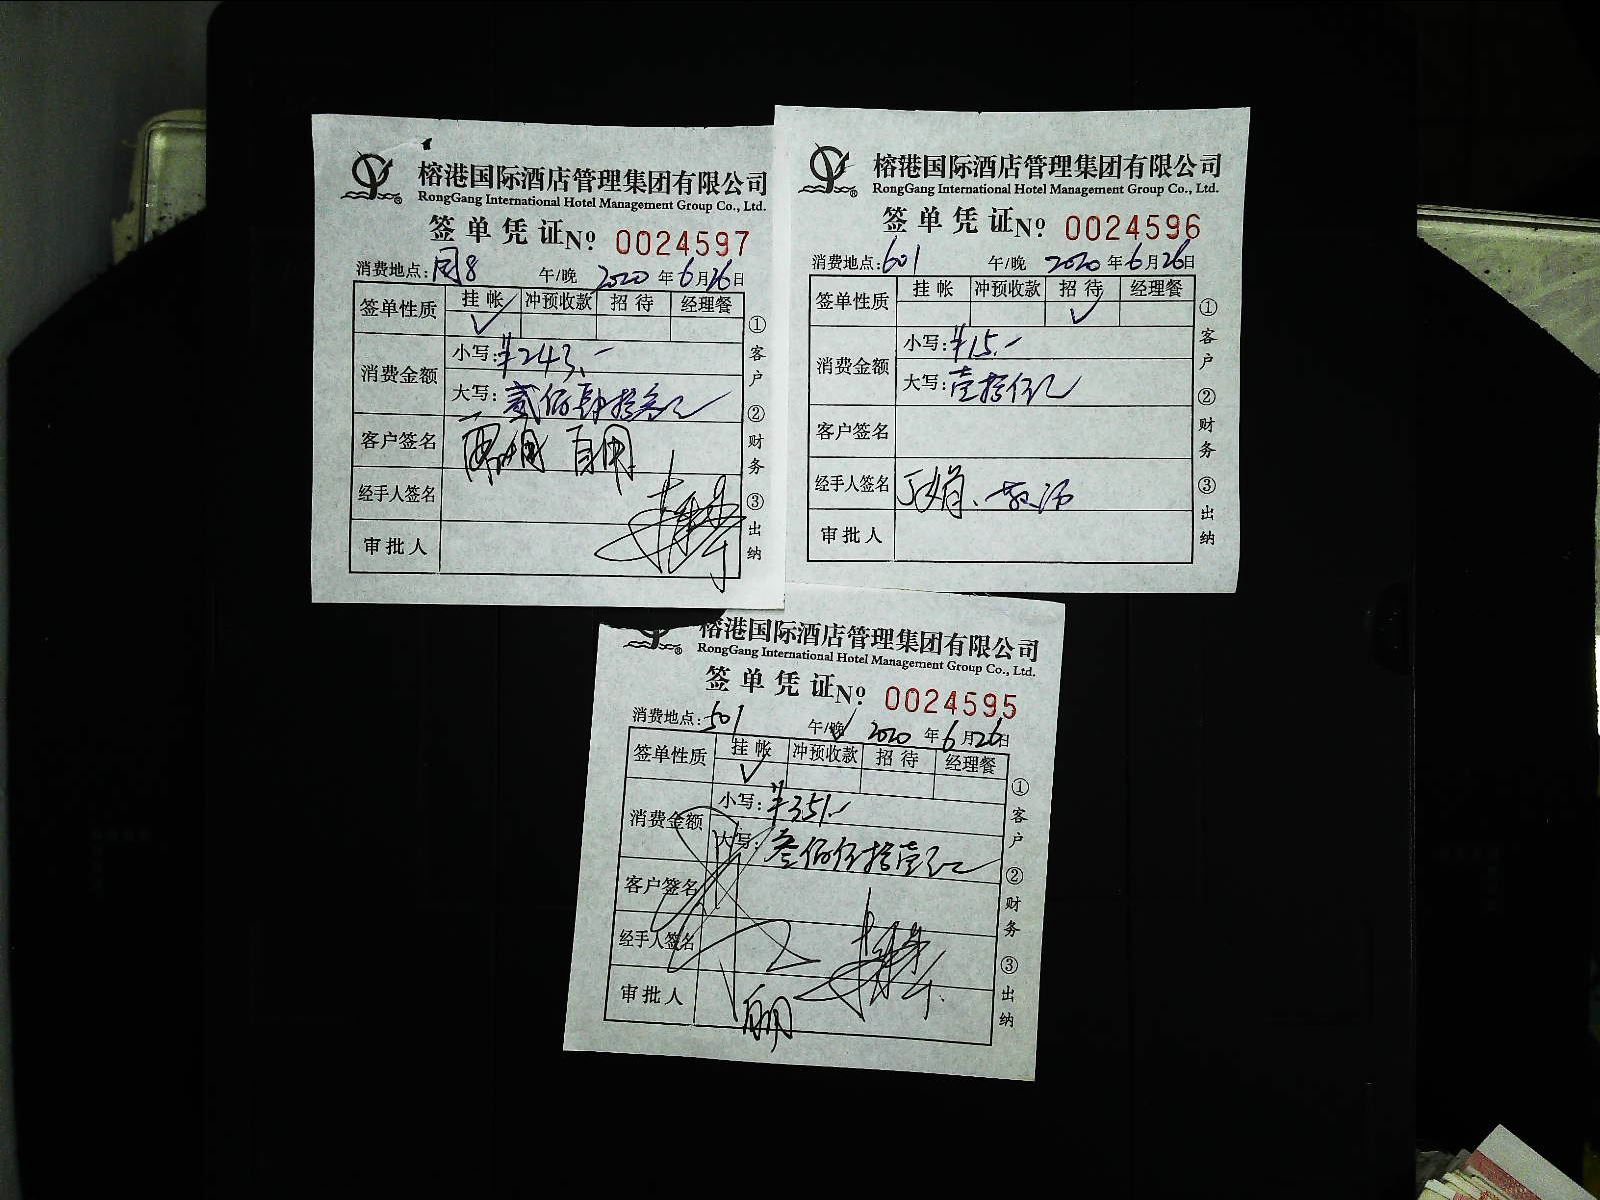 榕港国际酒店管理集团有限公司
RongGang International Hotel Management Group Co., Ltd.
签单凭证 No 0024597
消费地点: 8 午/晚 2020年6月26日
签单性质 挂帐 冲预收款 招待 经理餐
✓
消费金额 小写:¥243.-
大写:贰佰肆拾叁元
客户签名 自用
经手人签名
审批人
①客户 ②财务 ③出纳
榕港国际酒店管理集团有限公司
RongGang International Hotel Management Group Co., Ltd.
签单凭证 No 0024596
消费地点:601 午/晚 2020年6月26日
签单性质 挂帐 冲预收款 招待 经理餐
✓
消费金额 小写:¥15.-
大写:壹拾伍元
客户签名
经手人签名
审批人
①客户 ②财务 ③出纳
榕港国际酒店管理集团有限公司
RongGang International Hotel Management Group Co., Ltd.
签单凭证 No 0024595
消费地点:501 午/晚 2020年6月26日
签单性质 挂帐 冲预收款 招待 经理餐
✓
消费金额 小写:¥351.-
大写:叁佰伍拾壹元
客户签名
经手人签名
审批人
①客户 ②财务 ③出纳